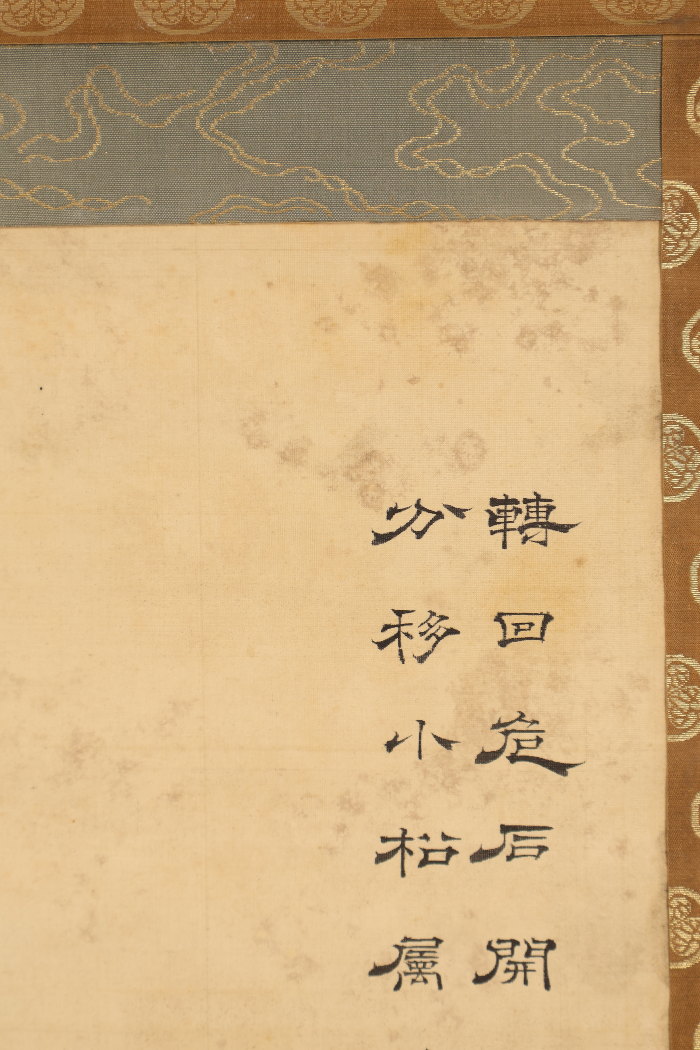 轉回危石開
分移小松属